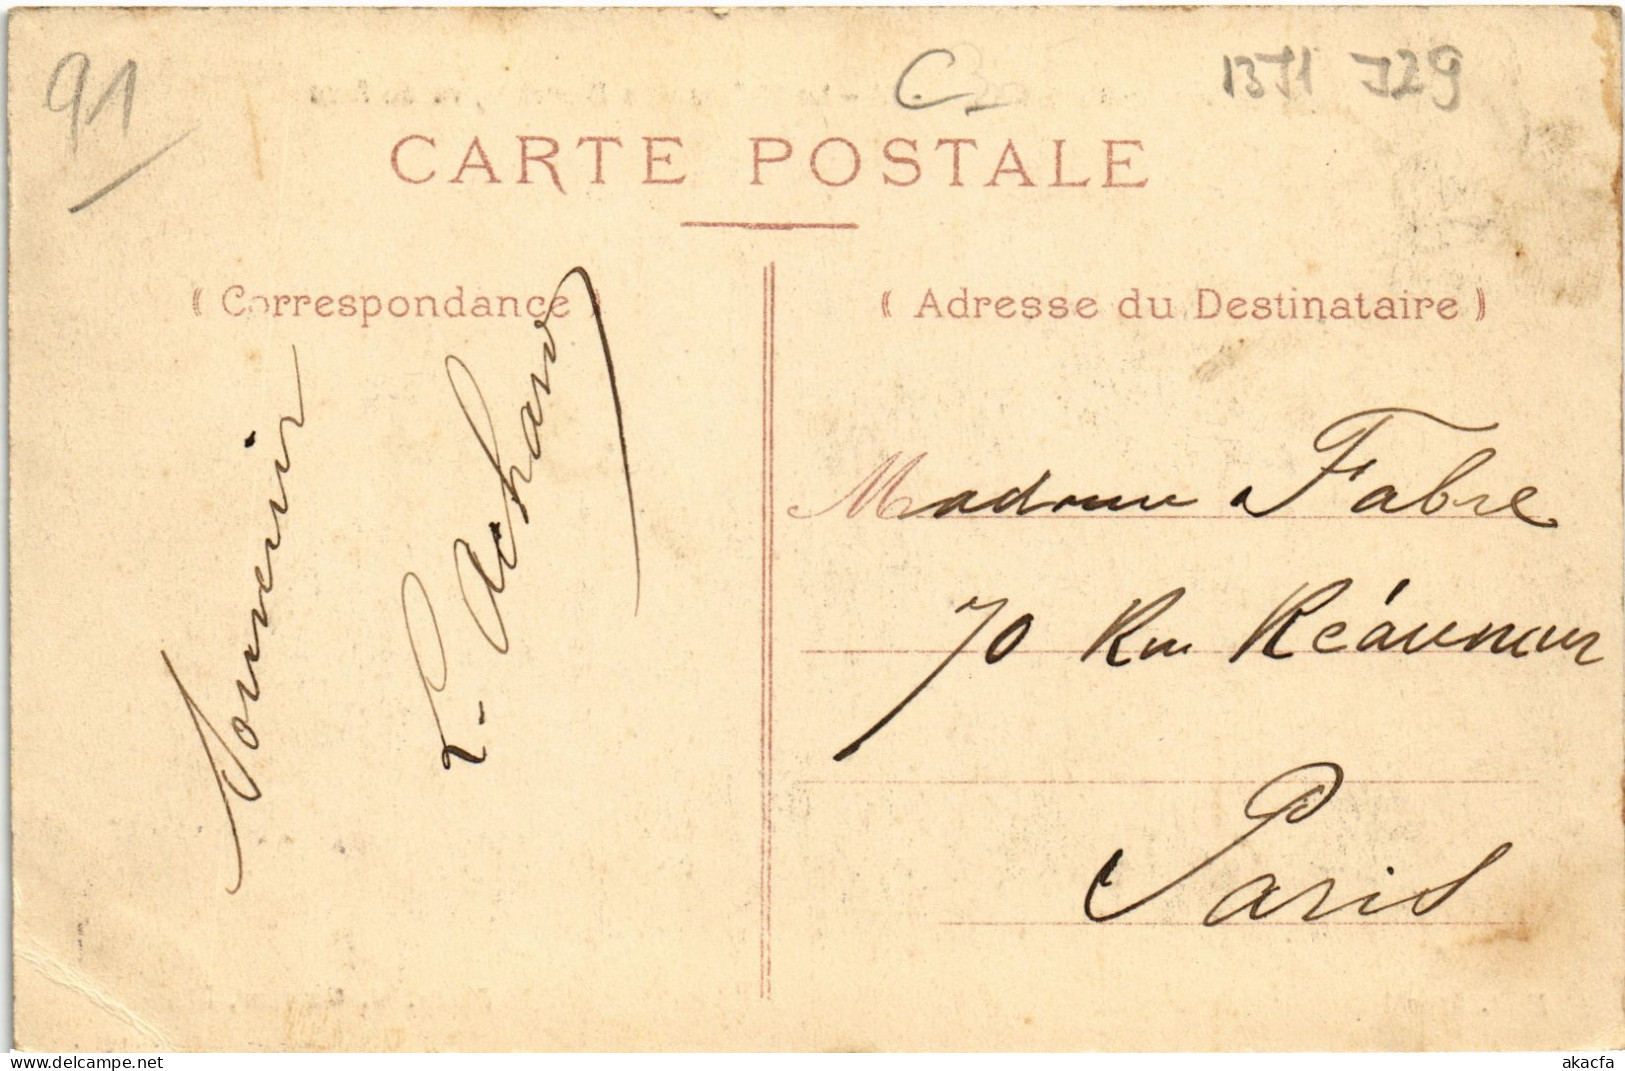 91
C
13J1 J29
CARTE POSTALE
( Correspondance )
( Adresse du Destinataire )
Souvenir
L. Achard
Madame Fabre
70 Rue Réaumur
Paris
akacfa